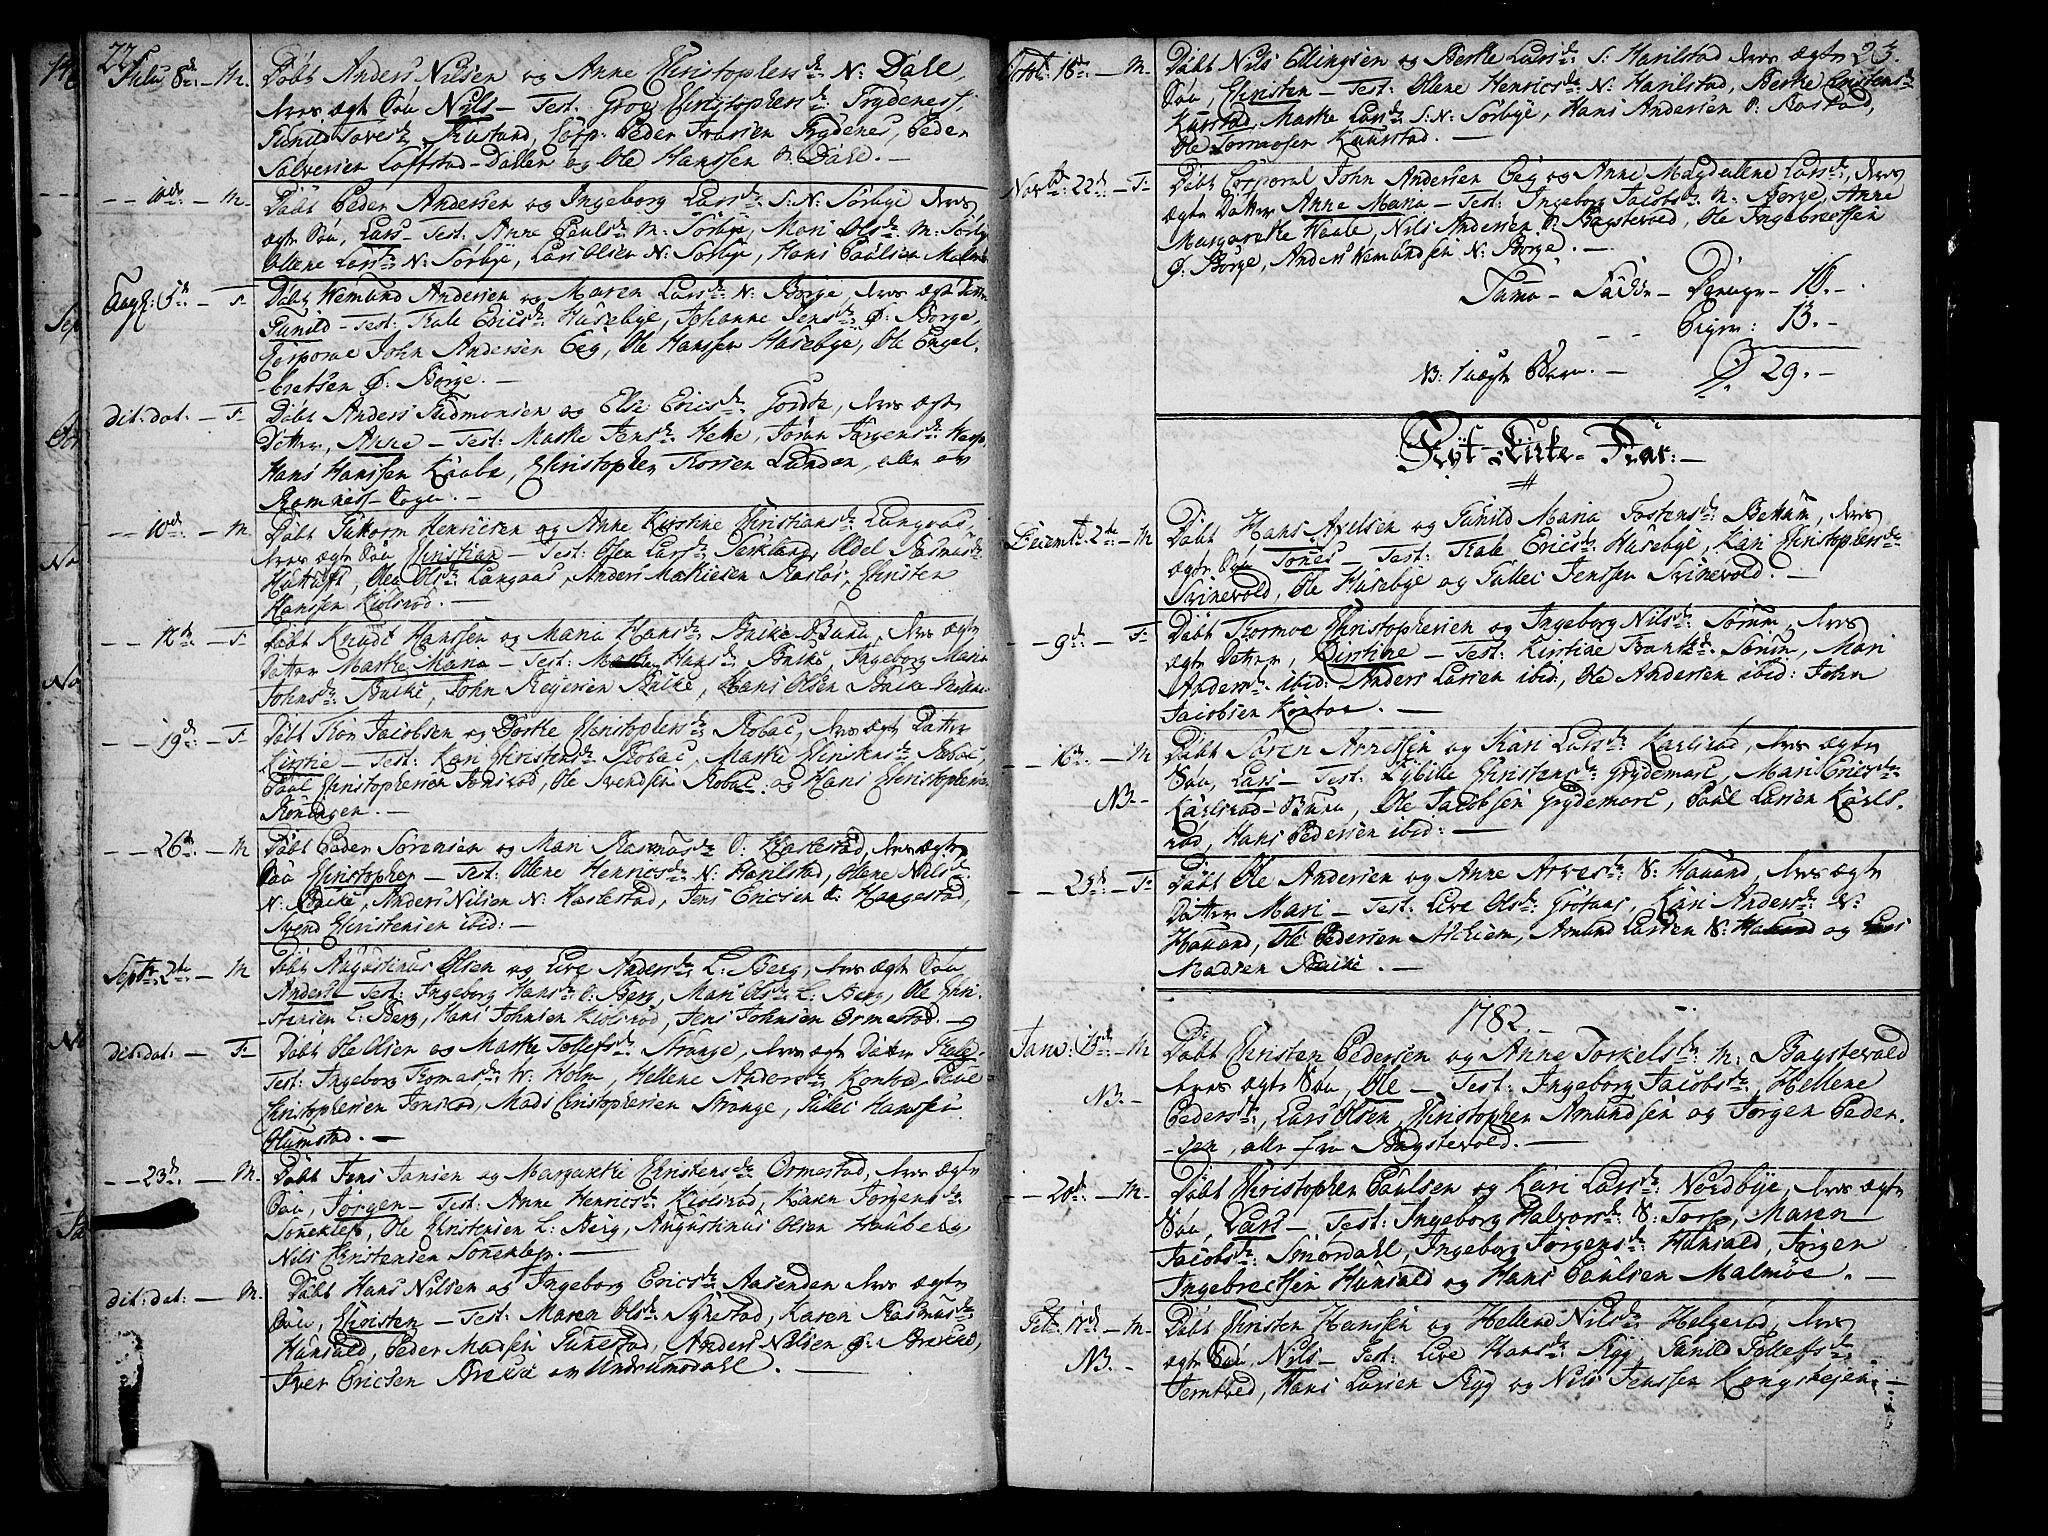 22.
Julii 8de — M. Döbt Anders Nilsen og Anne Christophersdr N: Dale,
hvis ægte Søn Nils — Test: Groe Christophersdr Frydenes,
Gunild Rustand, Corp: Peder Frydenes, Peder
Salvesen Lofstad-Dalen og Ole Hanssen N: Dale. —
— — 10de — M. Döbt Peder Andersen og Ingeborg Larsdr S: N: Sörbye hvis
ægte Søn, Lars — Test: Anne Paulsdr M: Sörbye, Mari Olsdr M: Sörbye
Ollene Larsdr N: Sörbye, Lars Olsen N: Sörbye, Hans Paulsen Malmöe
Aug: 5te — F. Döbt Amund Andersen og Maren Larsdr N: Borge, hvis ægte Datter
Gunild — Test: Kale Ericsdr Husebye, Johanne Jensdr Ø: Borge,
Corporal John Andersen Eeg, Ole Hanssen Husebye, Ole Engel-
bretsen Ø: Borge. —
dit: dat. — F. Döbt Anders Gudmunsen og Else Ericsdr, hvis ægte
Datter, Anne — Test: Marthe Jensdr, Jöran Jörgensdr
Hans Hanssen Kaabe, Christopher Lunden, alle af
Ramnes-Sogn. —
— — 10de — M. Döbt Guttorm Henricsen og Anne Kirstine Christiansdr Langaas,
hvis ægte Søn Christian — Test: Olea Larsdr, Adel Rasmusdr
Olea Olsdr Langaas, Anders Mathiesen, Christen
Hanssen Kiolsröd. —
— — 12te — F. Döbt Knudt Hanssen og Maria Hansdr Bakke, hvis ægte
Datter Marthe Maria — Test: Marthe Hansdr Bakke, Ingeborg Maria
Johnsdr Bakke, John Reyersen Bakke, Hans Olsen Bakke
— — 19de — F. Döbt Jacobsen og Dorthe Christophersdr Robac, hvis ægte Datter
Kirstie — Test: Kari Christensdr Robac, Marthe Christensdr Robac,
Paul Christophersen Jonsröd, Ole Svendsen Robac og Hans Christophersen
Röningen. —
— — 26de — M Döbt Peder Sörensen og Mari Rasmusdr O: Hastestad, hvis ægte
Søn Christopher — Test: Ollene Henricsdr N: Harilstad, Ollene Nilsdr
N: Bakke, Anders Nilsen N: Hastestad, Jens Ericsen Ø: Haugestad,
Svend Christensen ibid: —
Septr 2de — M Döbt Augustinus Olsen og Live Andersdr L: Berg, hvis ægte Søn
Anders — Test: Ingeborg Hansdr O: Berg, Mari Olsdr L: Berg, Ole Chri-
stensen L: Berg, Hans Johnsen Kiolsröd, Jens Johnsen Ormestad. —
dit: dat. — F. Döbt Ole Olsen og Marthe Tollefsdr Strange, hvis ægte Datter
Test: Ingeborg Thomasdr W: Holm, Hellene Andersdr Kontoe, Paul
Christophersen Jonsröd, Mads Christophersen Strange, Gullei Hanssen
Humstad. —
— — 23de — M. Döbt Jens Jansen og Margarethe Christensdr Ormestad, hvis ægte
Søn, Jörgen — Test: Anne Henricsdr Kiolsröd, Karen Jörgensdr
Soneklef, Ole Christensen L: Berg, Augustinus Olsen Hauberg,
Nils Christensen Soneklef. —
dit: dat: — M. Döbt Hans Nilsen og Ingeborg Ericsdr Aasenden hvis ægte
Søn, Christen — Test: Maren Olsdr, Karen Rasmusdr
Hunsald, Peder Madsen Tunestad, Anders Nilsen Ø: Brekke,
Iver Ericsen Brekke af Undrumsdahl. —
23.
Octbr: 18de — M. Döbt Nils Ellingsen og Berthe Larsdr S: Harilstad hvis ægte
Søn, Christen — Test: Ollene Henricsdr N: Harilstad, Berthe Christensdr
Marthe Larsdr S: N: Sörbye, Hans Andersen Ø: Bastad,
Ole
Novbr: 22de — F. Döbt Corporal John Andersen Eeg og Anne Magdallene Larsdr, hvis
ægte Datter Anne Maria — Test: Ingeborg Jacobsdr N: Borge, Anne
Margarethe Haale, Nils Andersen Ø: Bagstevold, Ole Ingebretsen
Ø: Borge, Anders Amundsen N: Borge. —
Suma — Födde — Drenge — 16. —
— — Piger: 13. —
NB: 1 uægte Barn. — 29. —
Fröt-Kirke-Aar: —
Decembr 2de — M Döbt Hans Axelsen og Gunild Maria Tostensdr, hvis
ægte Søn Tones — Test: Kale Ericsdr Husebye, Kari Christophersdr
Svinevold, Ole Husebye og Gullei Jenssen Svinevold. —
— — 9de — F. Döbt Thormoe Christophersen og Ingeborg Nilsdr Sörum, hvis
ægte Datter, Kirstine — Test: Kirstine Sörum, Mari
Andersdr ibid: Anders Larsen ibid, Ole Andersen ibid: John
Jacobsen Kontoe. —
— — 16de — M Döbt Sören Arnessen og Kari Larsdr Karlsröd, hvis ægte
NB. — Søn, Lars — Test: Sybille Christensdr Grydemose, Mari Ericsdr
Karlsröd, Ole Jacobsen Grydemose, Paul Larsen Karls-
röd, Hans Pedersen ibid: —
— — 23de — F. Döbt Ole Andersen og Anne Arvesdr S: Hauand, hvis ægte
Datter Mari — Test: Live Olsdr, Kari Andersdr N:
Hauand, Ole Pedersen, Amund Larsen S: Hauand og
Madsen Bakke. —
1782. —
Janv: 6te — M Döbt Christen Pedersen og Anne Torkelsdr M: Bagstevold
NB. — hvis ægte Søn, Ole — Test: Ingeborg Jacobsdr, Hellene
Pedersdr, Lars Olsen, Christopher Amundsen og Jörgen Peder-
sen, alle fra Bagstevold. —
— — 20de — M. Döbt Christopher Paulsen og Kari Larsdr Nordbye, hvis ægte
Søn, Lars — Test: Ingeborg Halvorsdr S: Torp, Maren
Jacobsdr, Ingeborg Jörgensdr Hunsald, Jörgen
Ingebretsen Hunsald og Hans Paulsen Malmöe. —
Feb: 17de — M. Döbt Christen Hanssen og Hellene Nilsdr Helgeröd, hvis
NB. — ægte Søn, Nils — Test: Live Hansdr Ryg, Gunild Tollefsdr
Jerntved, Hans Larsen Ryg og Nils Jenssen Kongshejen. —